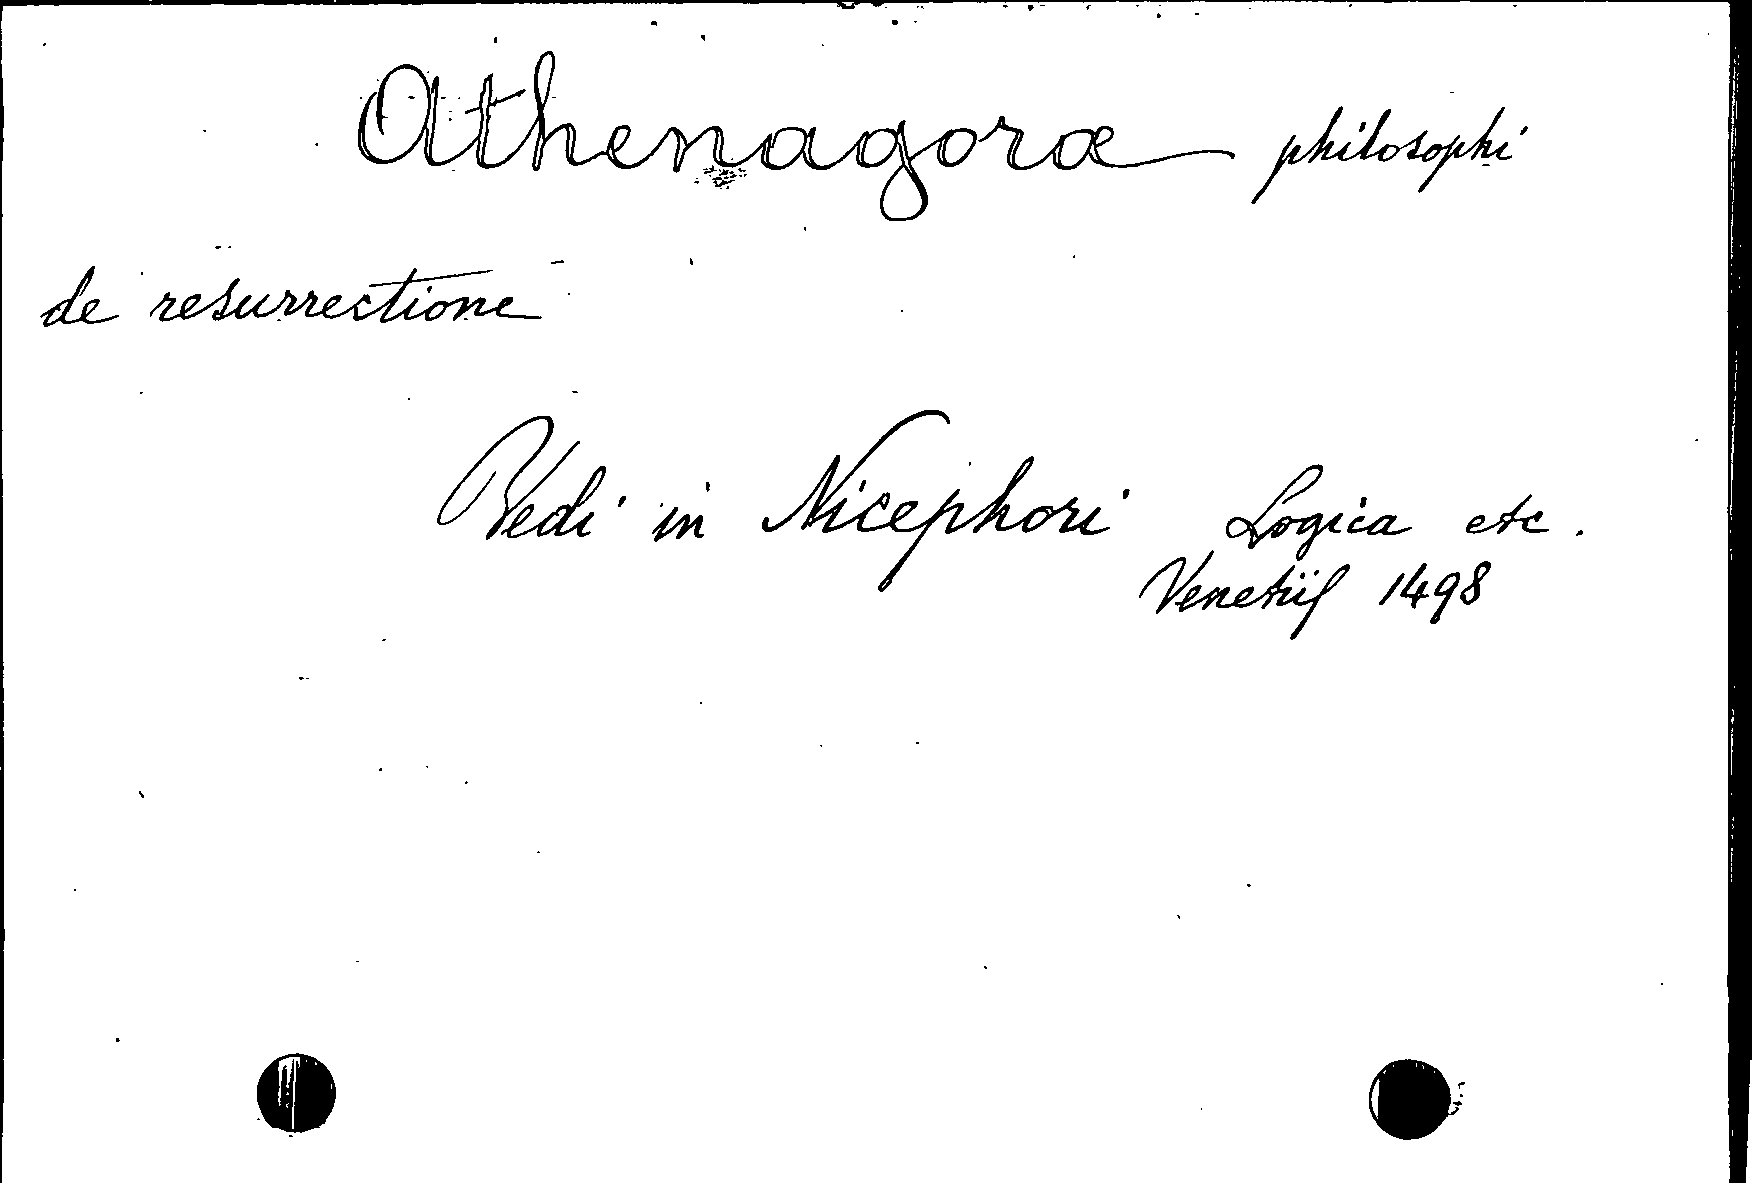 Athenagoræ philosophi
de resurrectione
Vedi in Nicephori Logica etc.
Venetiis 1498